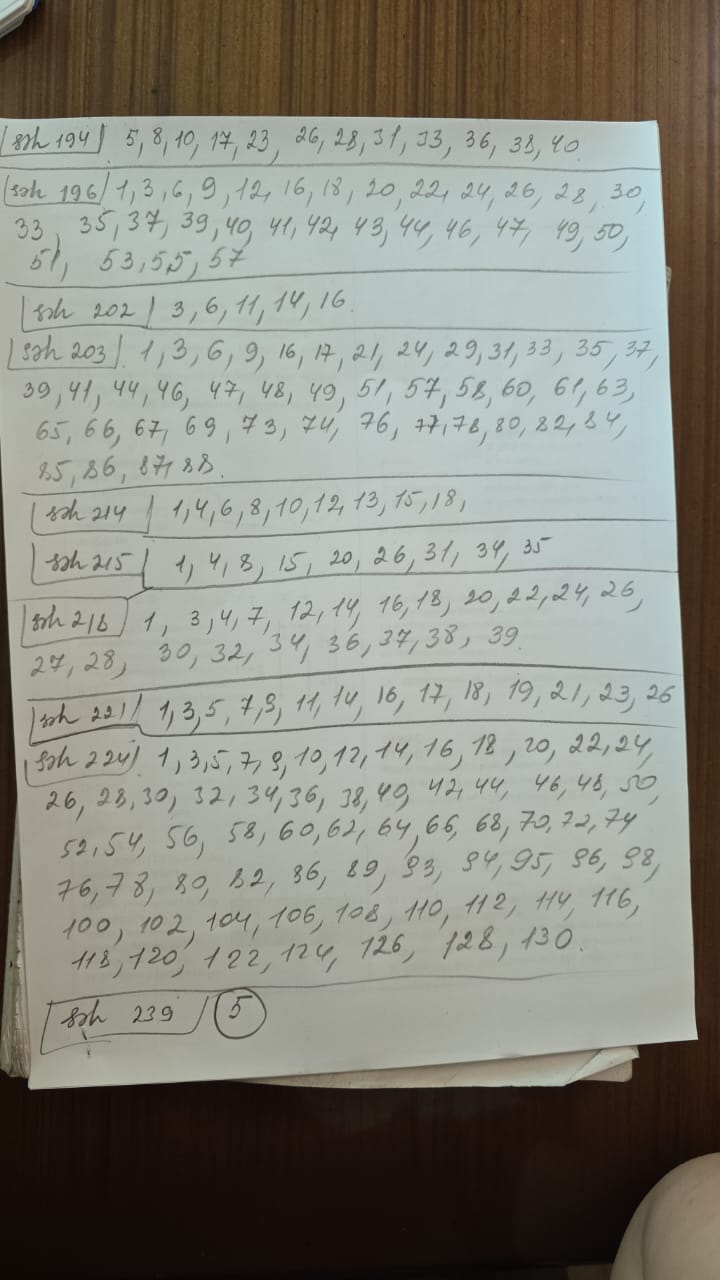 səh 194 5, 8, 10, 17, 23, 26, 28, 31, 33, 36, 38, 40
səh 196 1, 3, 6, 9, 12, 16, 18, 20, 22, 24, 26, 28, 30,
33, 35, 37, 39, 40, 41, 42, 43, 44, 46, 47, 49, 50,
51, 53, 55, 57
səh 202 3, 6, 11, 14, 16.
səh 203 1, 3, 6, 9, 16, 17, 21, 24, 29, 31, 33, 35, 37,
39, 41, 44, 46, 47, 48, 49, 51, 57, 58, 60, 61, 63,
65, 66, 67, 69, 73, 74, 76, 77, 78, 80, 82, 84,
85, 86, 87, 88.
səh 214 1, 4, 6, 8, 10, 12, 13, 15, 18,
səh 215 1, 4, 8, 15, 20, 26, 31, 34, 35
səh 218 1, 3, 4, 7, 12, 14, 16, 18, 20, 22, 24, 26,
27, 28, 30, 32, 34, 36, 37, 38, 39.
səh 221 1, 3, 5, 7, 9, 11, 14, 16, 17, 18, 19, 21, 23, 26
səh 224 1, 3, 5, 7, 9, 10, 12, 14, 16, 18, 20, 22, 24,
26, 28, 30, 32, 34, 36, 38, 40, 42, 44, 46, 48, 50,
52, 54, 56, 58, 60, 62, 64, 66, 68, 70, 72, 74
76, 78, 80, 82, 86, 89, 93, 94, 95, 96, 98,
100, 102, 104, 106, 108, 110, 112, 114, 116,
118, 120, 122, 124, 126, 128, 130.
səh 239 5